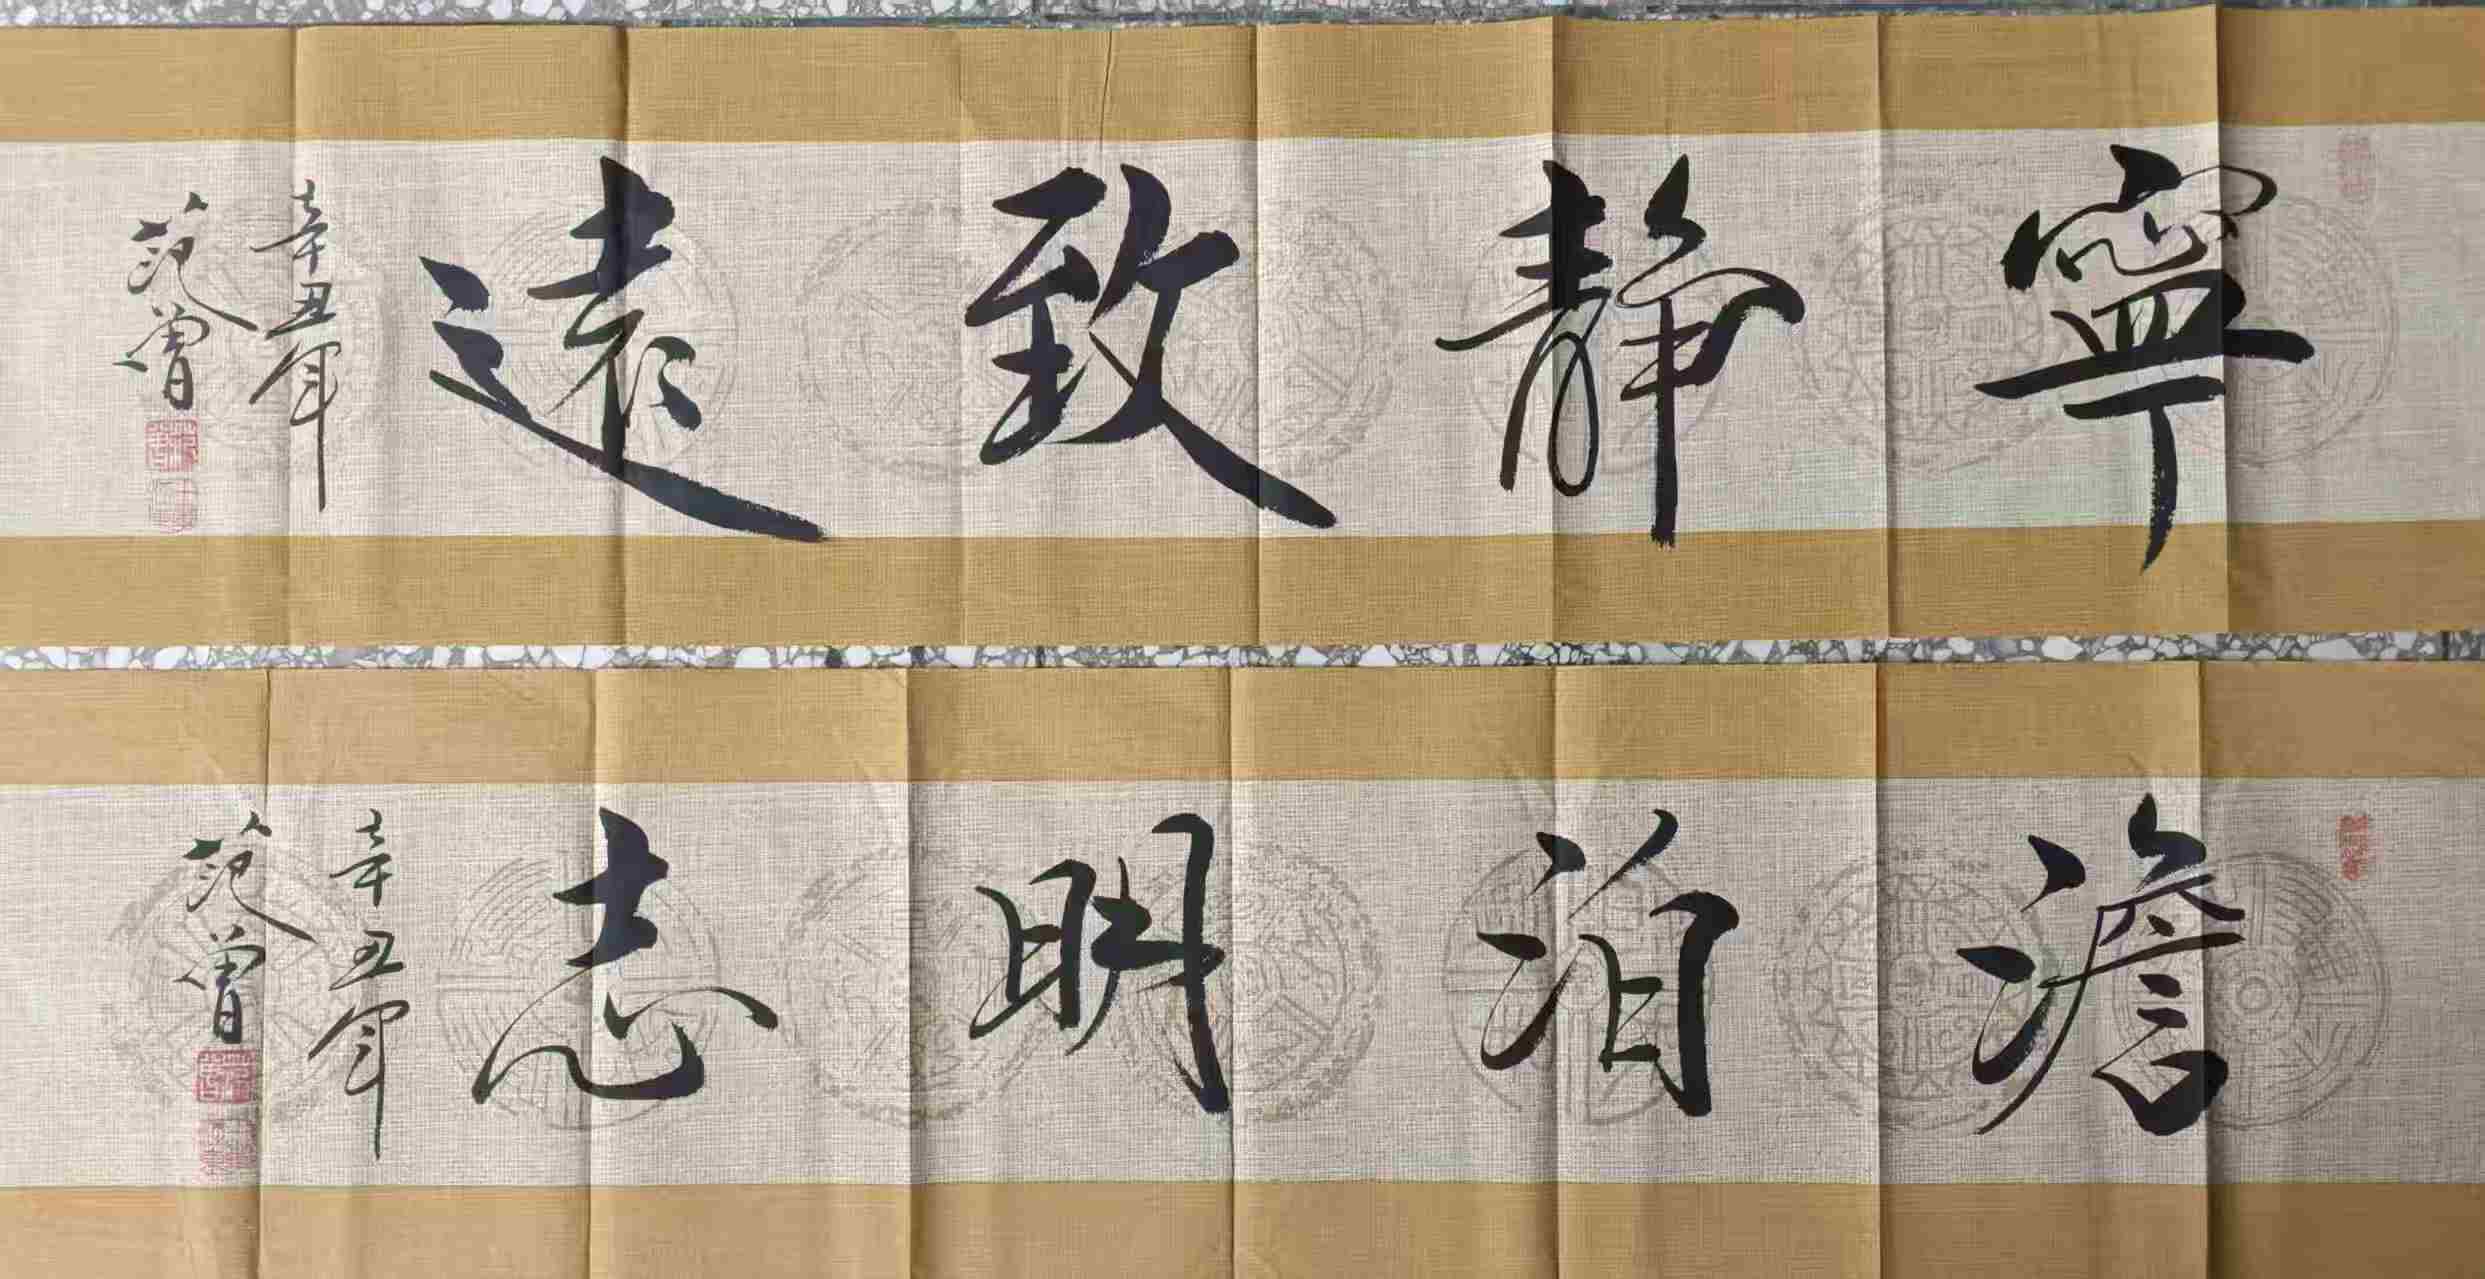 寧靜致遠
辛丑年
范曾
澹泊明志
辛丑年
范曾